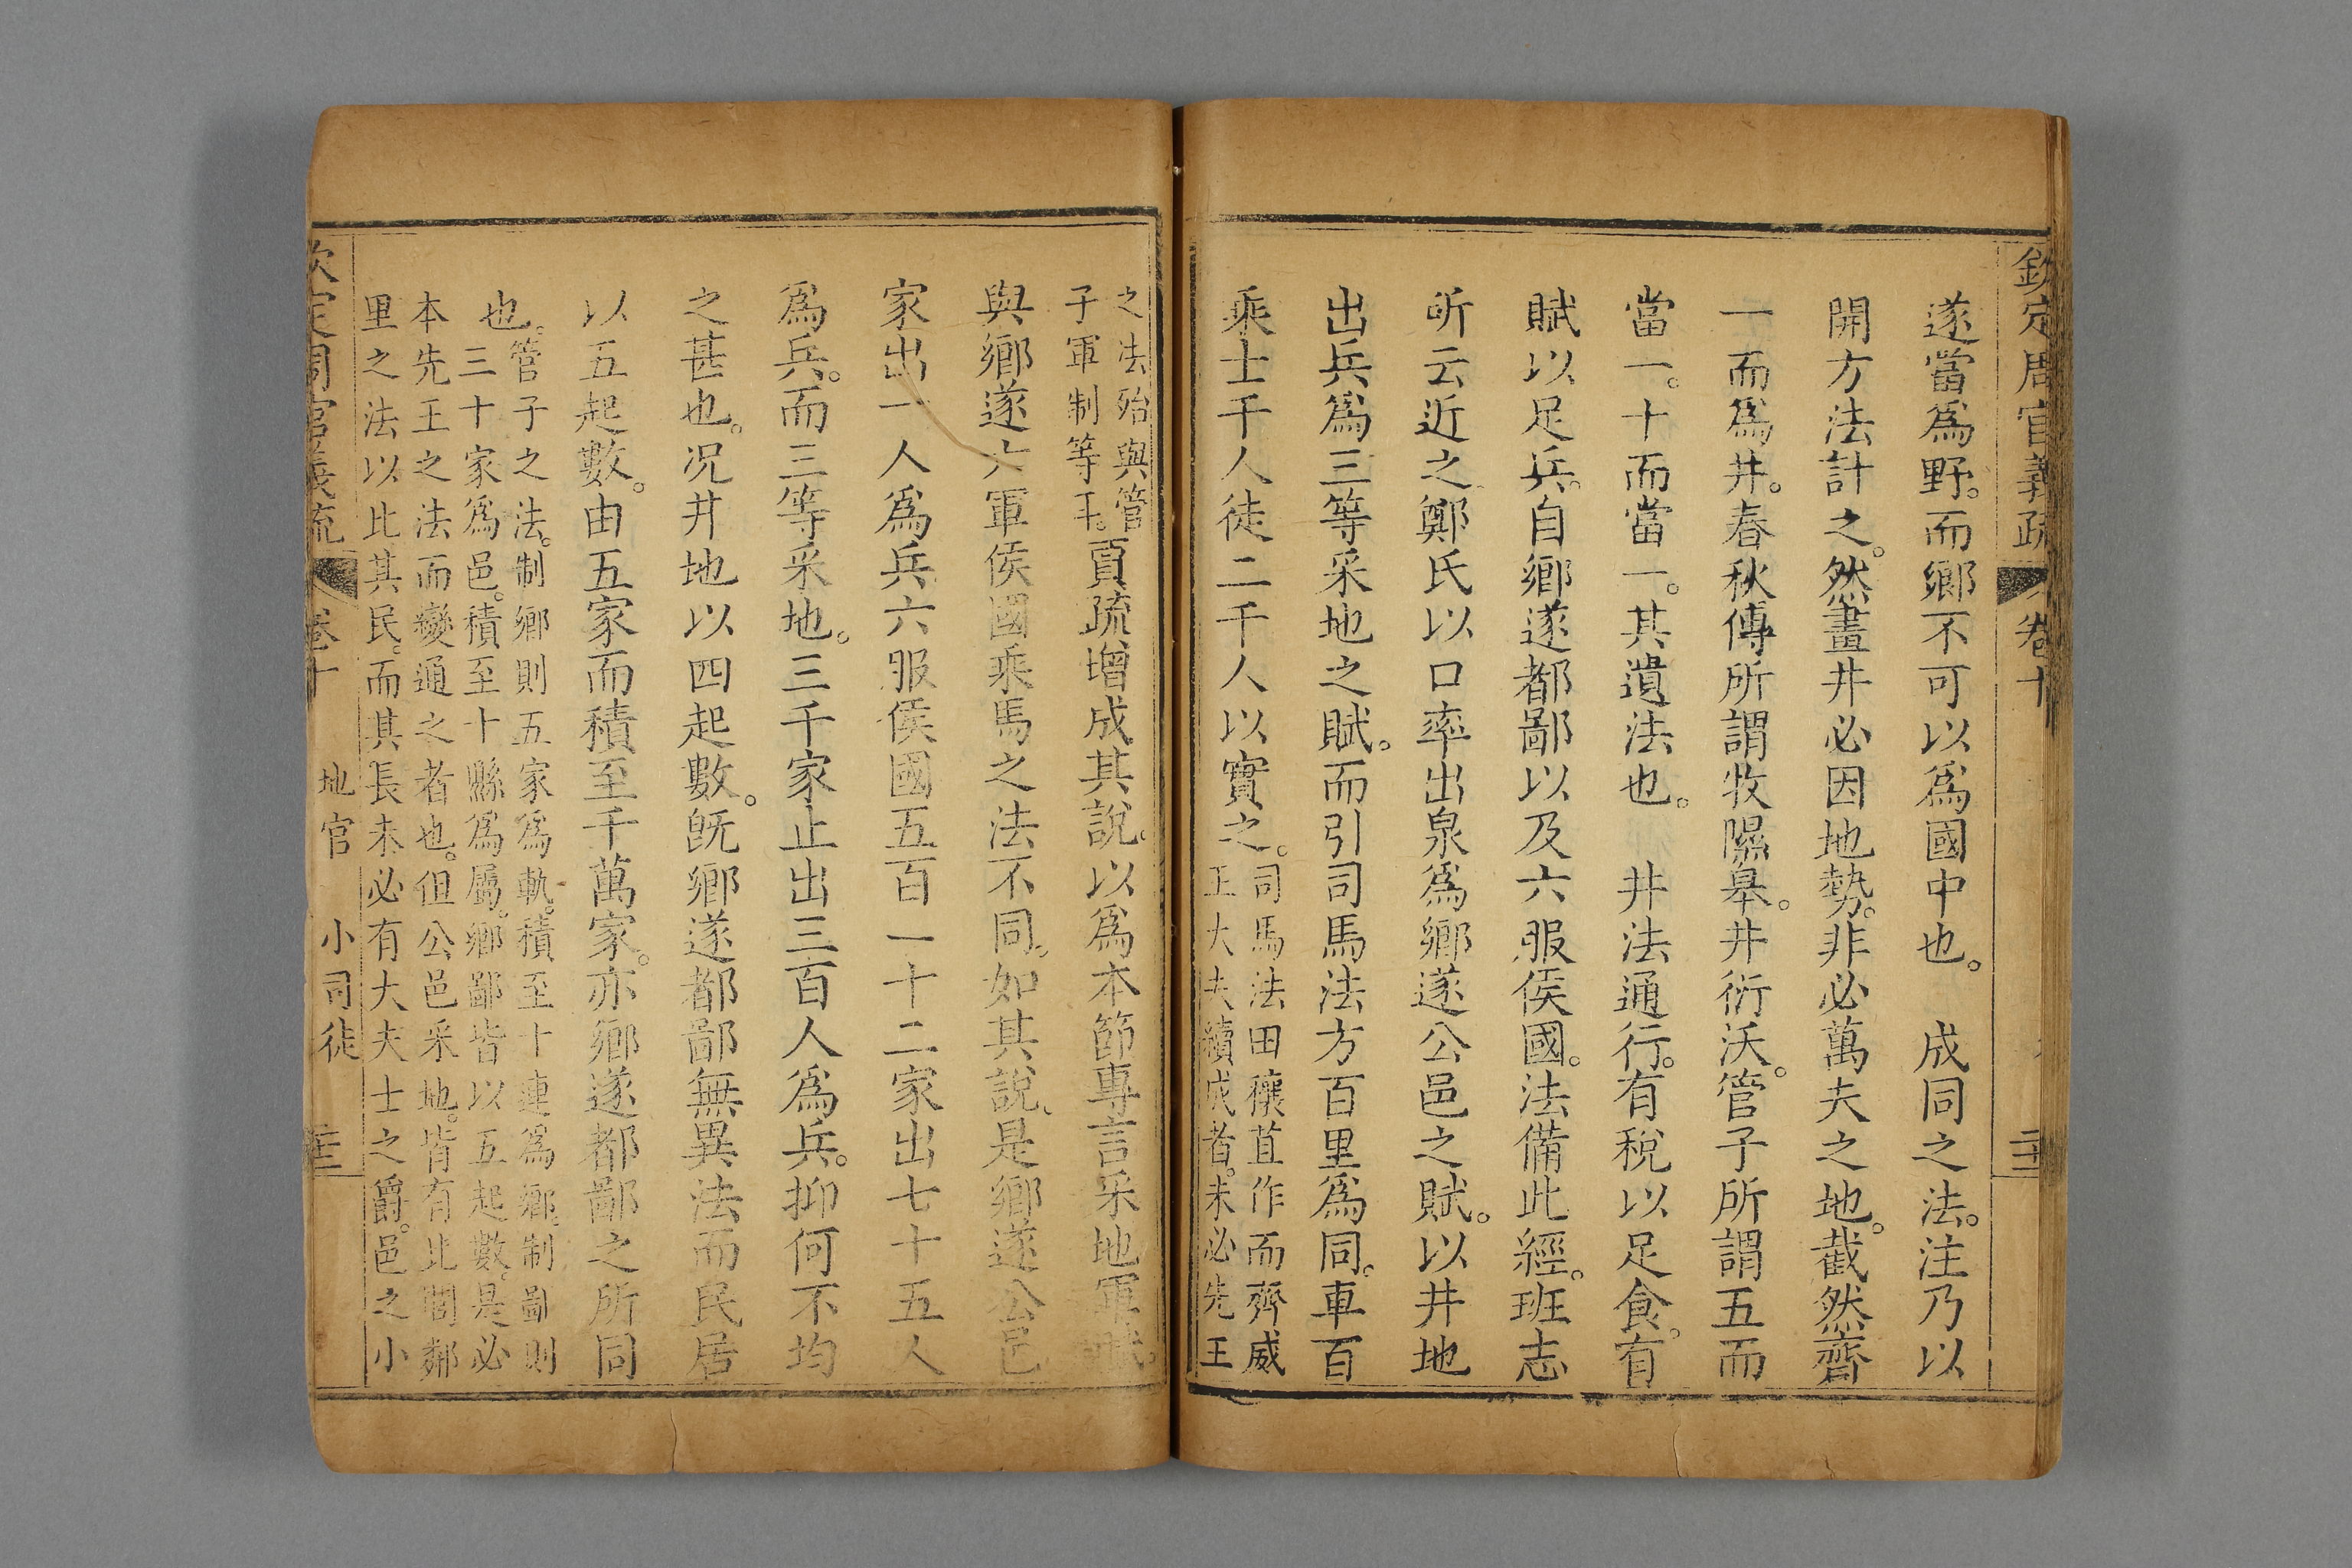 欽定周官義疏 卷十
遂當爲野。而鄉不可以爲國中也。 成同之法。注乃以
開方法計之。然畫井必因地勢。非必萬夫之地。截然齊
一而爲井。春秋傳所謂牧隰皋。井衍沃。管子所謂五而
當一。十而當一。其遺法也。 井法通行。有稅以足食。有
賦以足兵。自鄉遂都鄙以及六服侯國。法備此經。班志
所云近之。鄭氏以口率出泉爲鄉遂公邑之賦。以井地
出兵爲三等采地之賦。而引司馬法方百里爲同。車百
乘士千人徒二千人以實之。司馬法田穰苴作而齊威
王大夫續成者。未必先王
之法殆與管
子軍制等耳。賈疏增成其說。以爲本節專言采地軍賦。
與鄉遂六軍侯國乘馬之法不同。如其說。是鄉遂公邑
家出一人爲兵六服侯國五百一十二家出七十五人
爲兵。而三等采地。三千家止出三百人爲兵。抑何不均
之甚也。况井地以四起數。旣鄉遂都鄙無異法而民居
以五起數。由五家而積至千萬家。亦鄉遂都鄙之所同
也。管子之法。制鄉則五家爲軌。積至十連爲鄉。制鄙則
三十家爲邑。積至十縣爲屬。鄉鄙皆以五起數。是必
本先王之法而變通之者也。但公邑采地。皆有比閭鄰
里之法以比其民。而其長未必有大夫士之爵。邑之小
欽定周官義疏 卷十 地官 小司徒